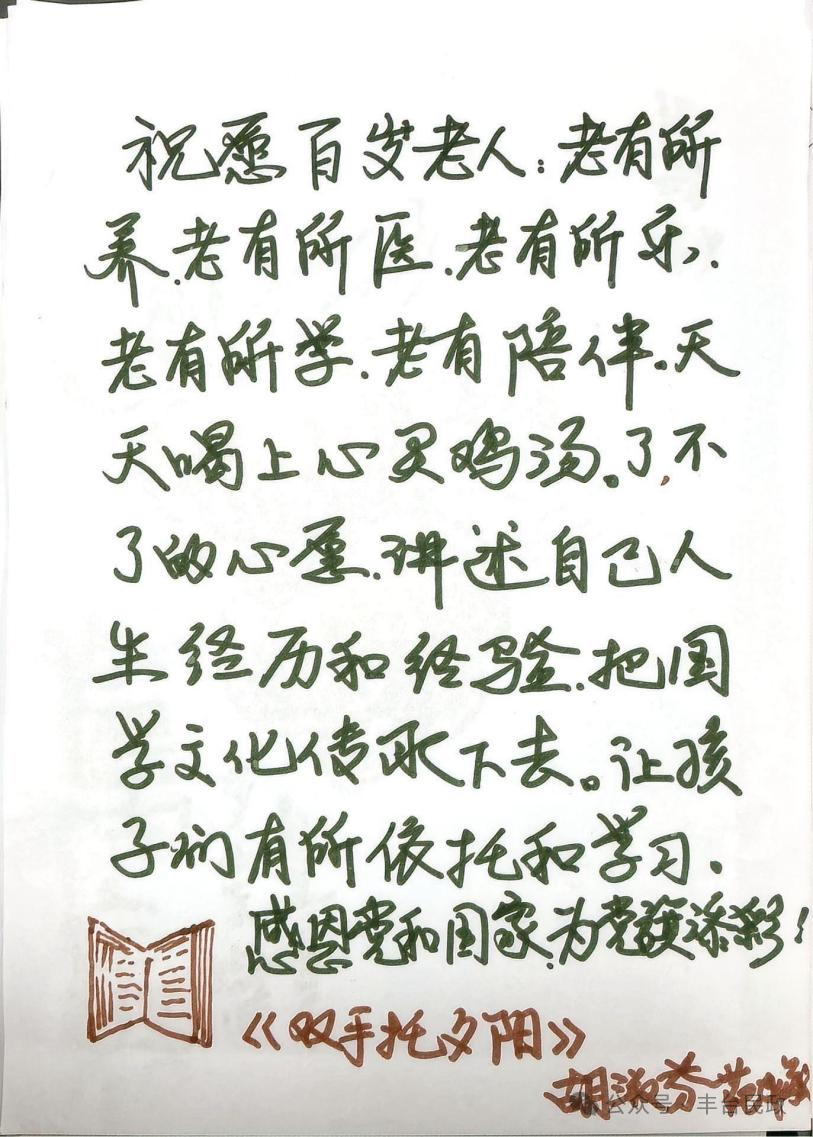 祝愿百岁老人：老有所
养.老有所医.老有所乐、.
老有所学.老有陪伴.天
天喝上心灵鸡汤。了,不
了的心愿.讲述自己人
生经历和经验.把国
学文化传承下去。让孩
子们有所依托和学习.
感恩党和国家.为党旗添彩！
《双手托夕阳》
胡淑芬
公众号·丰台民政